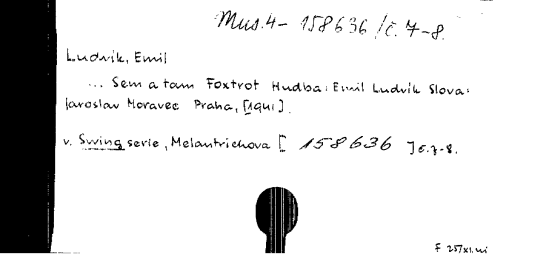 Mus.4- 158636/č.7-8.
Ludvík, Emil
... Sem a tam Foxtrot Hudba: Emil Ludvík Slova:
Jaroslav Moravec Praha, [1941].
v. Swing serie, Melantrichova [ 158636 ] č.7-8.